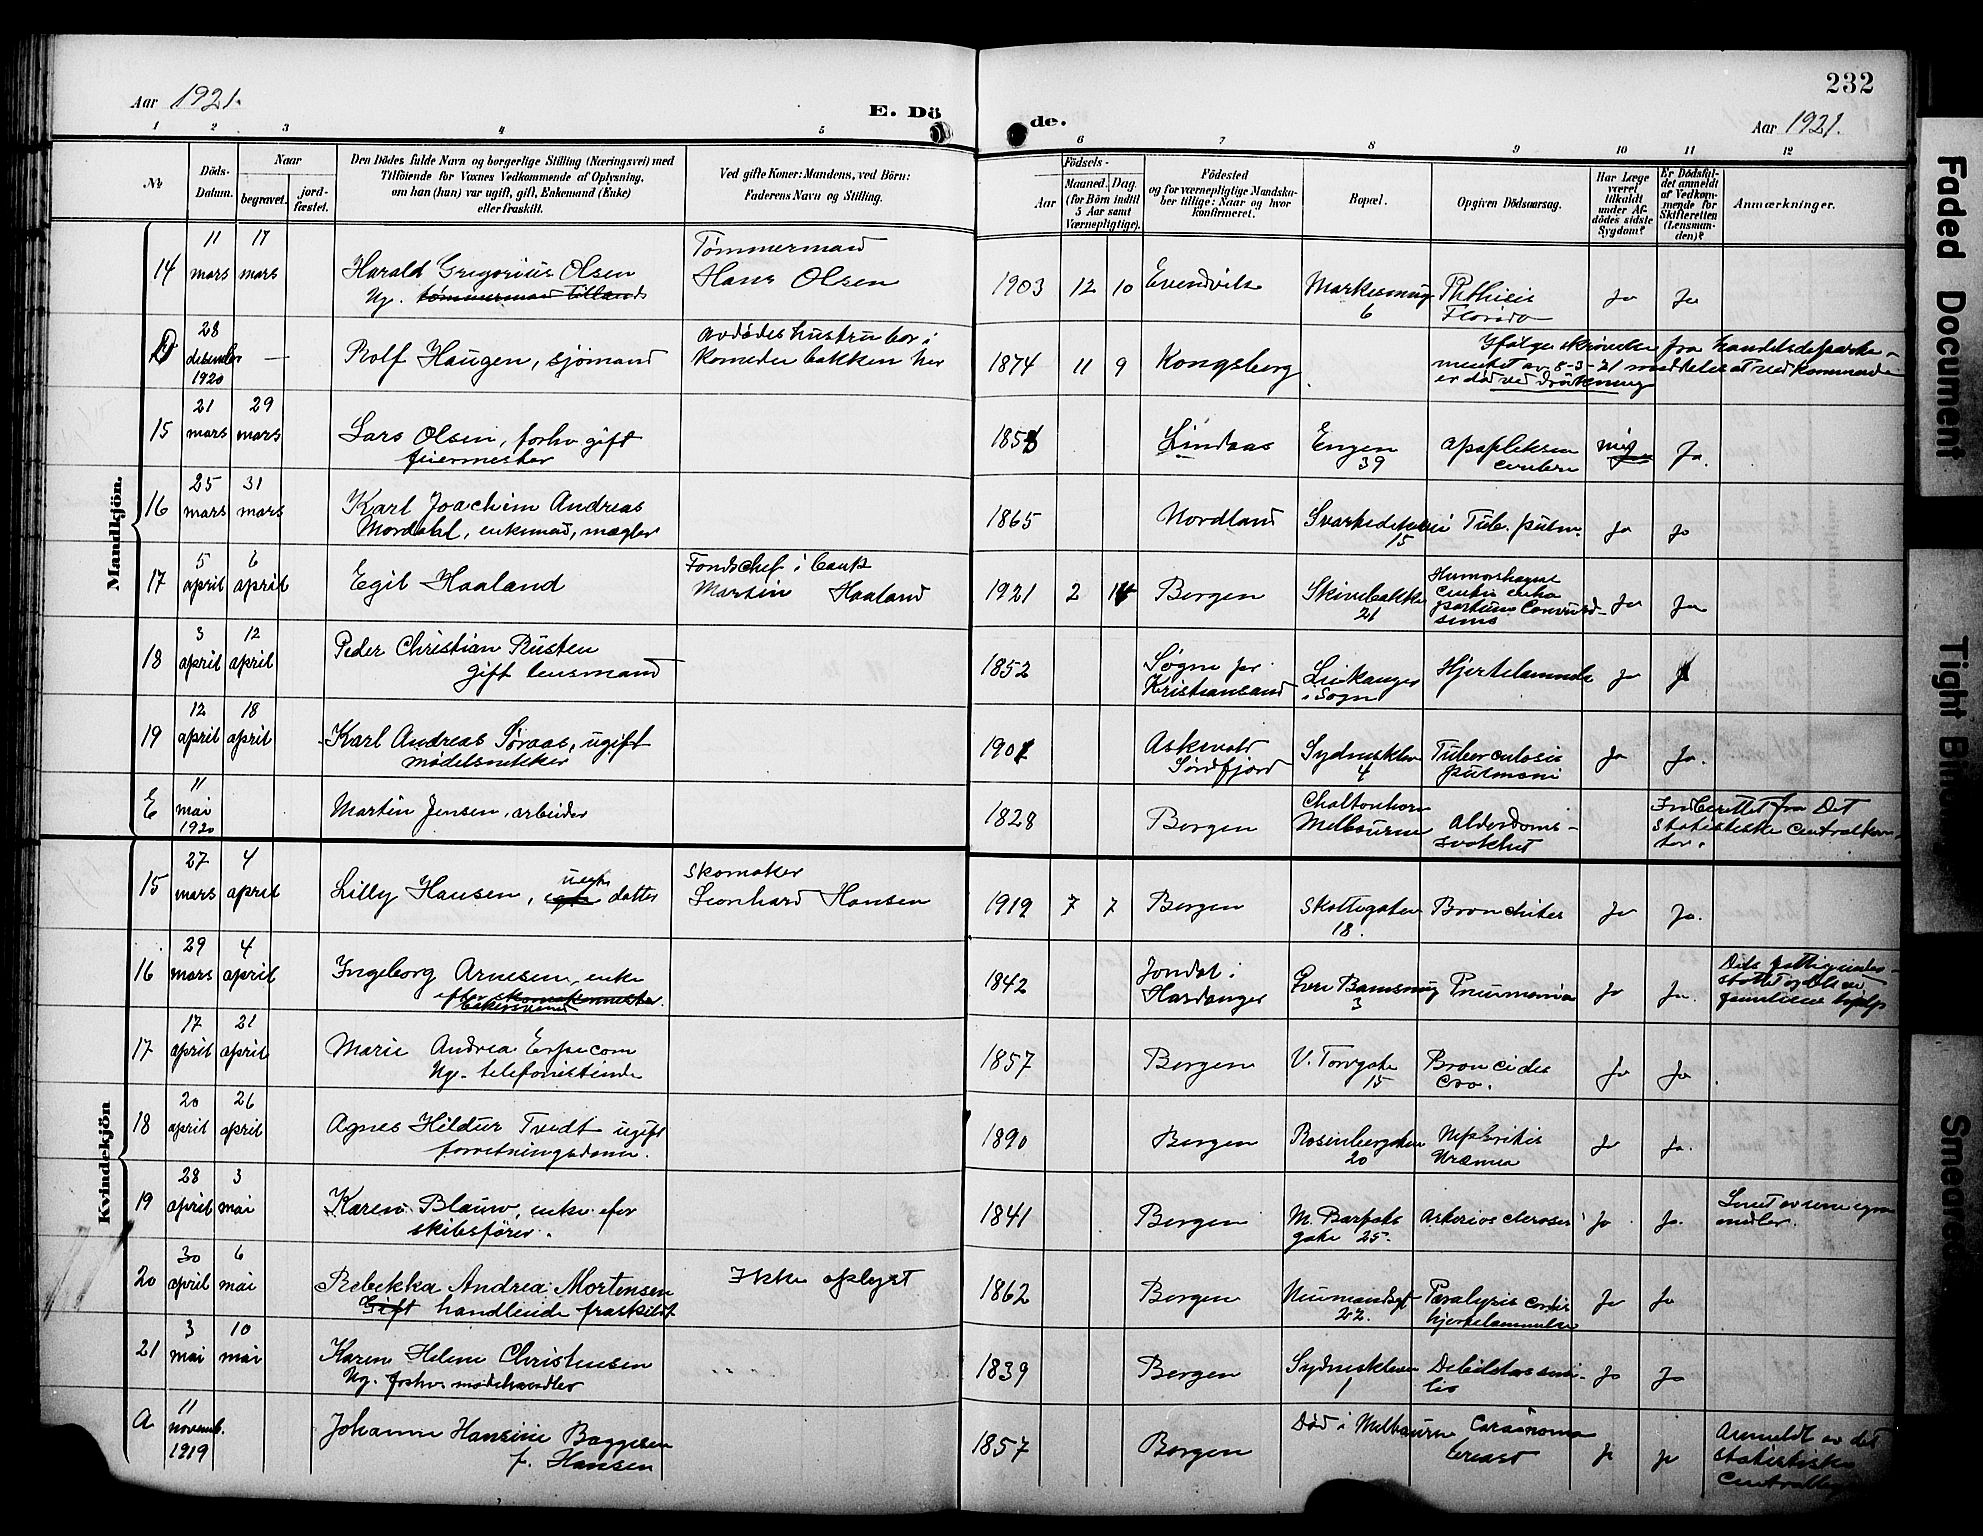 Aar 1921.
E. Døde.
232
Aar 1921.
1 2 3 4 5 6 7 8 9 10 11 12
No
Döds-Datum.
Naar
begravet.
jord-fæstet.
Den Dödes fulde Navn og borgerlige Stilling (Næringsvei) med
Tilföiende for Voxnes Vedkommende af Oplysning,
om han (hun) var ugift, gift, Enkemand (Enke)
eller fraskilt.
Ved gifte Koner: Mandens, ved Börn:
Faderens Navn og Stilling.
Födsels-
Aar
Maaned. Dag.
(for Börn indtil
5 Aar samt
Værnepligtige).
Födested
og for værnepligtige Mandska-
ber tillige: Naar og hvor
konfirmeret.
Bopæl.
Opgiven Dödsaarsag.
Har Læge
været
tilkaldt
under Af-
dödes sidste
Sygdom?
Er Dödsfal-
det anmeldt
af Vedkom-
mende for
Skifteretten
(Lensman-
den)?
Anmærkninger.
Mandkjön.
14 11 mars 17 mars Harald Gregorius Olsen
Ug. tømmermand
Tømmermand
Hans Olsen
1903 12 10 Evendvik Markesmug 6 Phthisis Florida Ja Ja
D 28 desember 1920 — Rolf Haugen, sjömand
avdødes hustru bor i
Komediebakken her
1874 11 9 Kongsberg
Ifølge skrivelse fra Handelsdeparte-
mentet av 8-3-21 meddeles at vedkommende
er død ved drukning
15 21 mars 29 mars Lars Olsen, forhv gift
feiermester
Lindaas Engen 39 Ja.
16 25 mars 31 mars Karl Joachim Andreas
Mordahl, enkemand, mægler
1865 Nordland 15 Tub. pulm. Ja Ja
17 5 april 6 april Egil Haaland
Fondschef i bank
Martin Haaland
1921 2 Bergen Skivebakken 21 Ja Ja
18 3 april 12 april Peder Christian Rusten
gift lensmand
1852 Søgne pr.
Kristiansand
Leikanger
i Sogn
Hjertelammelse Ja
19 12 april 18 april Karl Andreas Søraas, ugift
mødelsnekker
Askevold
Søndfjord
Sydneskleven 4
Tuberculosis
pulmoni
Ja Ja.
E 11 mai 1920 Martin Jensen, arbeider
1828 Bergen
Melbourne
Alderdoms-
svakhet
Indberettet fra Det
statistiske Centralkon-
tor.
Kvindekjön
15 27 mars 4 april Lilly Hansen, datter
skomaker
Leonhard Hansen
1919 7 7 Bergen Skottegaten 18. Bronchiter Ja Ja.
16 29 mars 4 april Ingeborg Arnesen, enke
efter skomakermester
1842 Jondal i
Hardanger
3 Pneumonia Ja Ja.
17 17 april 21 april Marie Andrea Erpecom
Ug. telefonistinde
1857 Bergen V. Torvgate 15 Ja Ja
18 20 april 26 april Agnes Hildur Tvedt ugift
forretningsdame.
1890 Bergen Rosenbergsgaten 20
Nephritis
Uræmia
Ja Ja.
19 28 april 3 mai Karen Blauw, enke efter
skibsfører.
1841 Bergen gate 25. Arteriosclerosis Ja Ja.
Levet av sine egne
midler.
20 30 april 6 mai Rebekka Andrea Mortensen
Gift handlende fraskilt
Ikke oplyst
1862 Bergen Neumandsgt 22.
Paralysis cordis
hjertelammelse
Ja Ja
21 3 mai 10 mai Karen Helene Christensen
Ug. forhv. modehandler
1839 Bergen Sydneskleven 1 Ja Ja
A 11 novemb. 1919 Johanne Hansine Baggesen
f. Hansen
1857 Bergen Død i Melbourne
Carcinoma
breast
Ja Ja
Anmeldt av det
statistiske
Faded Document
Tight Bin
Smeared